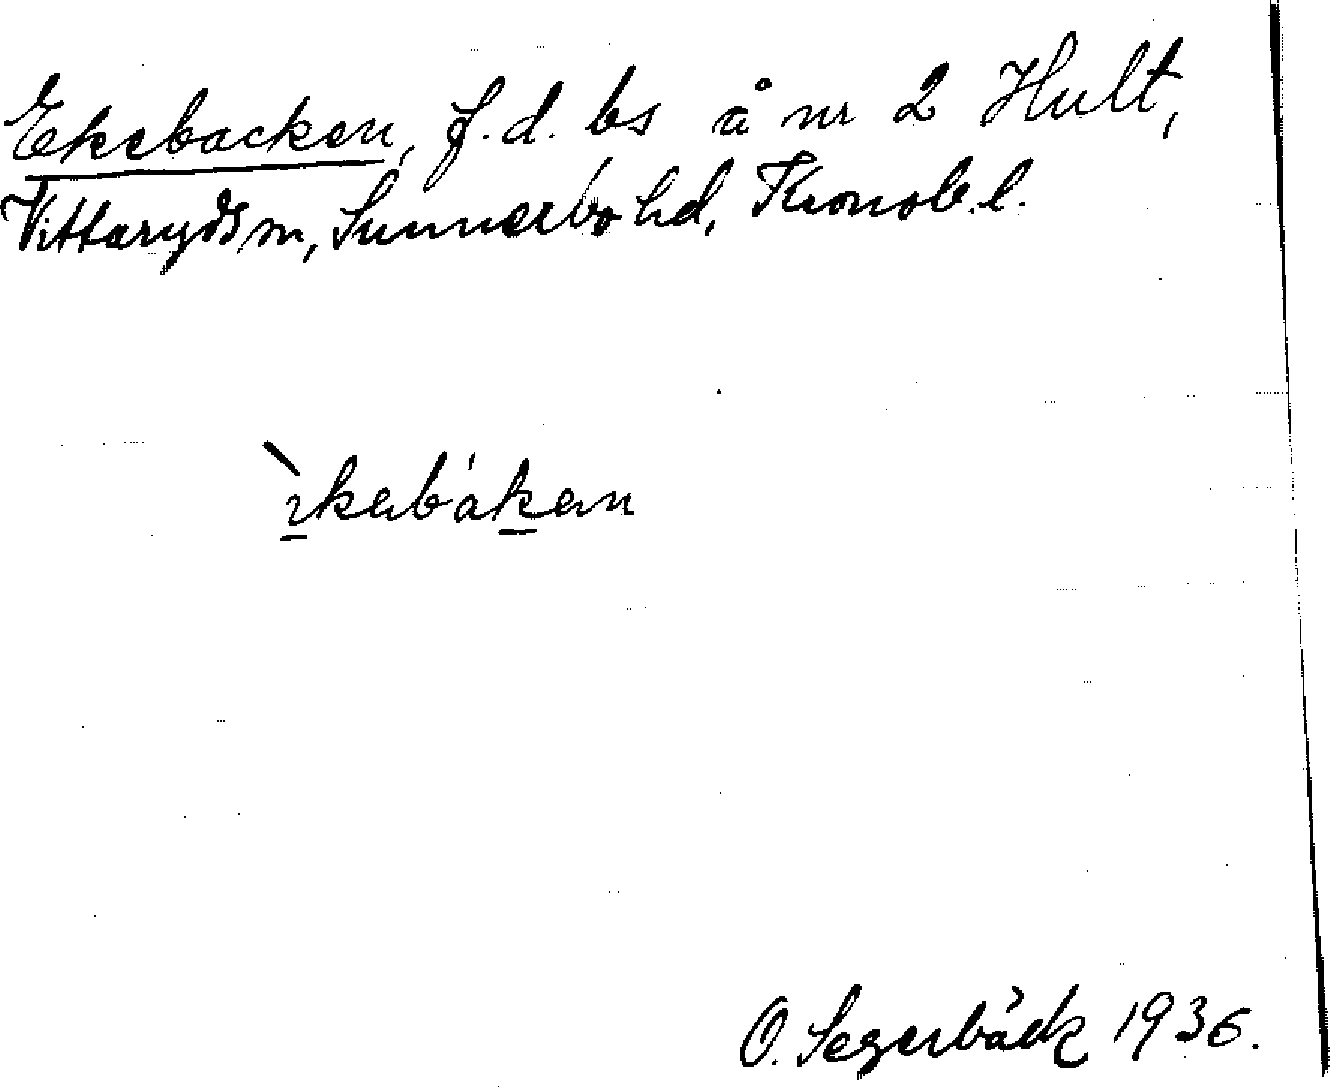 Ekebacken, f.d. bs å nr 2 Hult,
Vittaryds sn, Sunnerbo hd, Kronob. l.
ìkebáken
O. Segerbäck 1936.